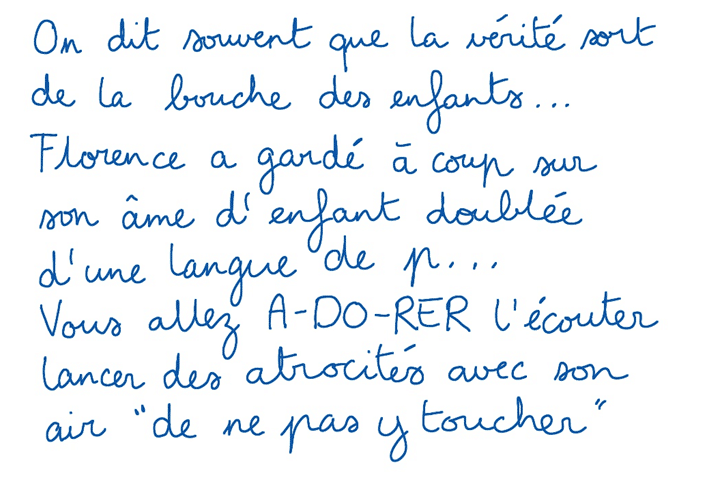 On dit souvent que la vérité sort
de la bouche des enfants...
Florence a gardé à coup sur
son âme d'enfant doublée
d'une langue de p...
Vous allez A-DO-RER l'écouter
lancer des atrocités avec son
air "de ne pas y toucher"